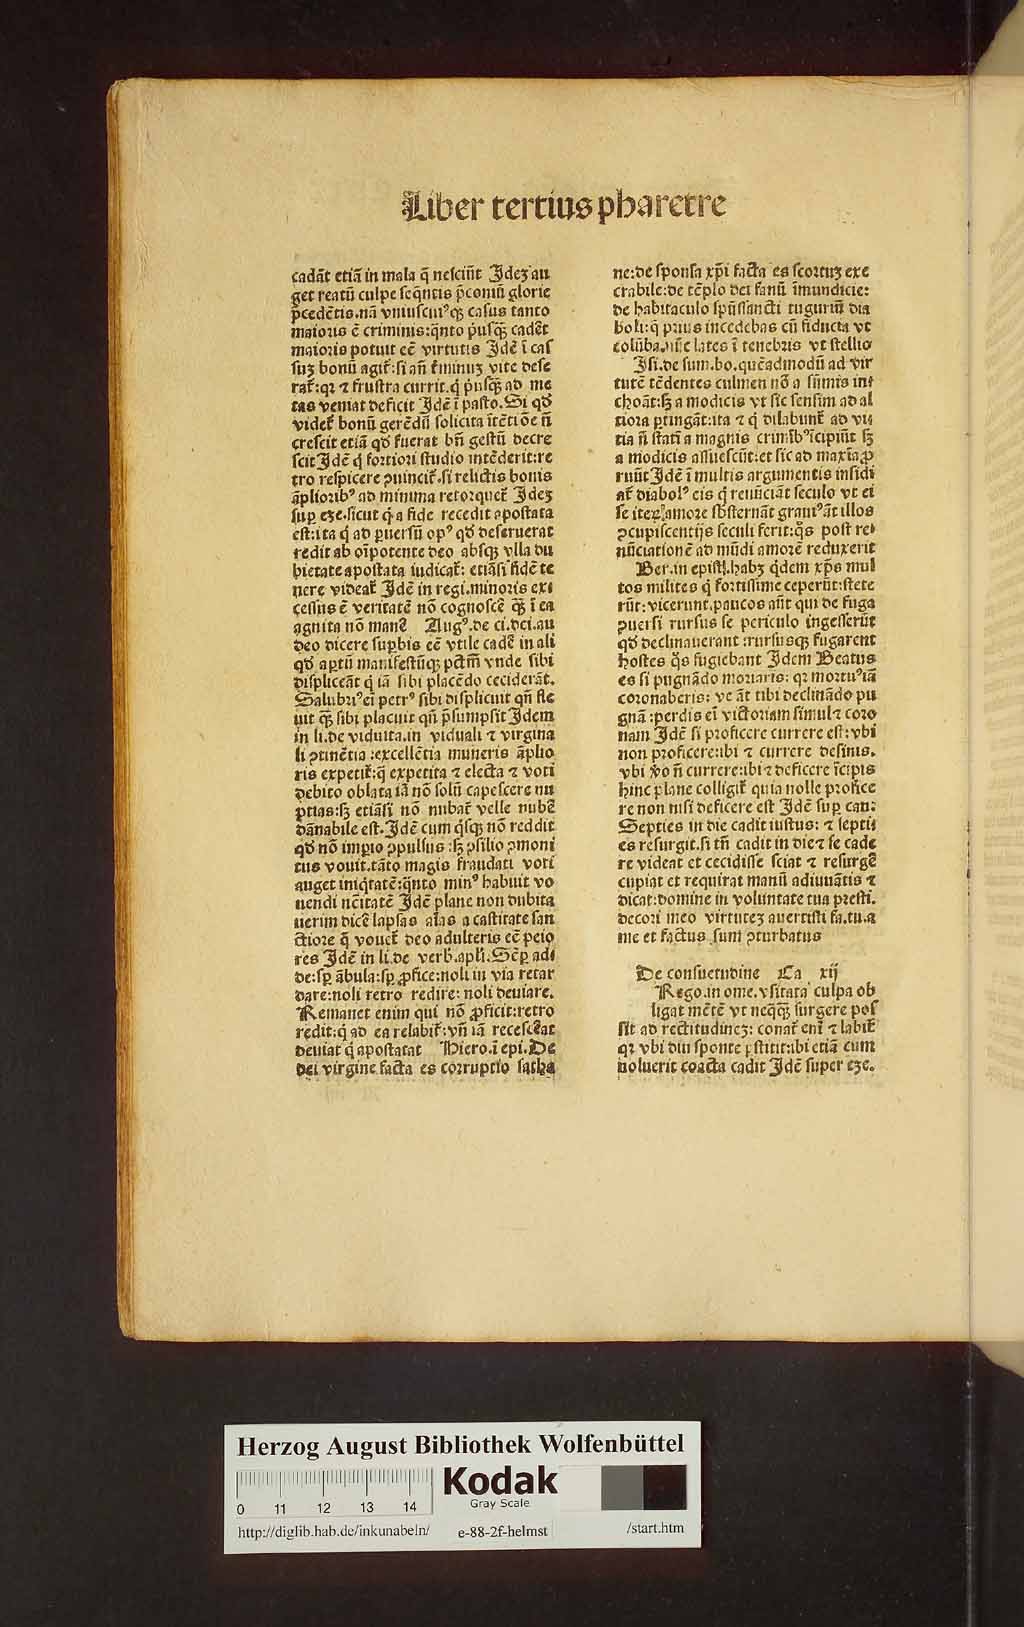 Liber tertius pharetre
cadãt etiã in mala q̃ nesciũt Jdeʒ au
get reatũ culpe seq̃ntis p̃coniũ glorie
p̃cedẽtis.nã vniuscuiꝰqꝫ casus tanto
maioris ẽ criminis:q̃nto p̃usqꝫ̃ cadẽt
maioris potuit eẽ virtutis Jdẽ ĩ cas
suʒ bonũ agit᷑:si añ t᷑minuʒ vite dese
rat᷑:qꝛ ⁊ frustra currit.q̇ p̃usqꝫ̃ ad me
tas veniat deficit Jdẽ ĩ pasto.Si qđ
videt᷑ bonũ gerẽdũ solicita ĩtẽtiõe ñ
crescit etiã qđ fuerat bñ gestũ decre
scit Jdẽ q̇ fortiori studio intẽderit:re
tro respicere ꝯuincit᷑.si relictis bonis
ãplioribꝰ ad minima retorquet᷑ Jdeʒ
suꝑ eʒe.sicut q̇ a fide recedit apostata
est:ita q̇ ad ꝑuersũ opꝰ qđ deseruerat
redit ab oĩpotente deo absqꝫ vlla du
bietate apostata iudicat᷑: etiãsi fidẽ te
nere videat᷑ Jdẽ in regi.minoris exi
cessus ẽ veritatẽ nõ cognoscẽ qꝫ̃ ĩ ea
agnita nõ manẽ Augꝰ.de ci.dei.au
deo dicere suꝑbis eẽ vtile cadẽ in ali
qđ aꝑtũ manifestũqꝫ pctm̃ vnde sibi
displiceãt q̇ iã sibi placẽdo ceciderãt.
Salubriꝰ eĩ petrꝰ sibi displicuit qñ fle
uit qꝫ̃ sibi placuit qñ p̃sumpsit Jdem
in li.de viduita.in viduali ⁊ virgina
li ꝯtinẽtia :excellẽtia muneris ãplio
ris expetit᷑:q̃ expetita ⁊ electa ⁊ voti
debito oblata iã nõ solũ capescere nu
ptias:sꝫ etiãsi nõ nubat᷑ velle nubẽ
dãnabile est.Jdẽ cum q̇sqꝫ nõ reddit
qđ nõ impio ꝯpulsus :sꝫ ꝯsilio ꝯmoni
tus vouit.tãto magis fraudati voti
auget iniq̇tatẽ:q̃nto minꝰ habuit vo
uendi nẽitatẽ Jdẽ plane non dubita
uerim dicẽ lapsas alas a castitate san
ctiore q̃ vouet᷑ deo adulteris eẽ peio
res Jdẽ in li.de verb̃.apl̃i.Sẽꝑ adi
de:sꝑ ãbula:sꝑ ꝓfice:noli in via retar
dare:noli retro redire: noli deuiare.
Remanet enim qui nõ ꝓficit:retro
redit:q̇ ad ea relabit᷑:vñ iã recesserat
deuiat q̇ apostatat Hiero.ĩ epi.De
dei virgine facta es corruptio satha
ne:de sponsa xp̃i facta es scortuʒ exe
crabile:de tẽplo dei fanũ ĩmundicie:
de habitaculo spũssancti tuguriũ dia
boli:q̃ prius incedebas cũ fiducia vt
colũba.nũc lates ĩ tenebris vt stellio
Jsi.de sum.bo.quẽadmodũ ad vir
tutẽ tẽdentes culmen nõ a sũmis ini
choãt:sꝫ a modicis vt sic sensim ad al
tiora ꝑtingãt:ita ⁊ q̇ dilabunt᷑ ad vi
tia ñ statĩ a magnis crimĩbꝰ ĩcipiũt sꝫ
a modicis assuescũt:et sic ad maxĩa ꝓ
ruũt Jdẽ ĩ multis argumentis insidi
at᷑ diabolꝰ eis q̇ renũciãt seculo vt ei
se iteꝝ amore sb̃sternãt grauiꝰ ãt illos
ꝯcupiscentijs seculi ferit:q̇s post re
nũciationẽ ad mũdi amorẽ reduxerit
Ber.in epist̃l.habʒ q̇dem xp̃s mul
tos milites q̇ fortissime ceperũt:stete
rũt:vicerunt.paucos aũt qui de fuga
ꝯuersi rursus se periculo ingesserũt
qđ declinauerant :rursusqꝫ fugarent
hostes q̇s fugiebant Jdem Beatus
es si pugnãdo moriaris: qꝛ mortuꝰ iã
coronaberis: ve ãt tibi declinãdo pu
gnã :perdis eĩ victoriam simul ⁊ coro
nam Jdẽ si proficere currere est:vbi
non proficere:ibi ⁊ currere desinis.
vbi ꝟo ñ currere:ibi ⁊ deficere ĩcipis
hinc plane colligit᷑ quia nolle profice
re non nisi deficere est Jdẽ suꝑ can:
Septies in die cadit iustus: ⁊ septi
es resurgit.si tñ cadit in die ⁊ se cade
re videat et cecidisse sciat ⁊ resurgẽ
cupiat et requirat manũ adiuuãtis ⁊
dicat:domine in voluntate tua presti.
decori meo virtuteʒ auertisti fa.tu.a
me et factus sum ꝯturbatus
De consuetudine Ca xij
Rego.in ome.vsitata culpa ob
ligat mẽtẽ vt neq̃qꝫ surgere pos
sit ad rectitudineʒ: conat᷑ enĩ ⁊ labit᷑
qꝛ vbi diu sponte ꝑstitit:ibi etiã cum
noluerit coacta cadit Jdẽ super eʒe.
Herzog August Bibliothek Wolfenbüttel
Kodak
Gray Scale
0 11 12 13 14
http://diglib.hab.de/inkunabeln/ e-88-2f-helmst /start.htm